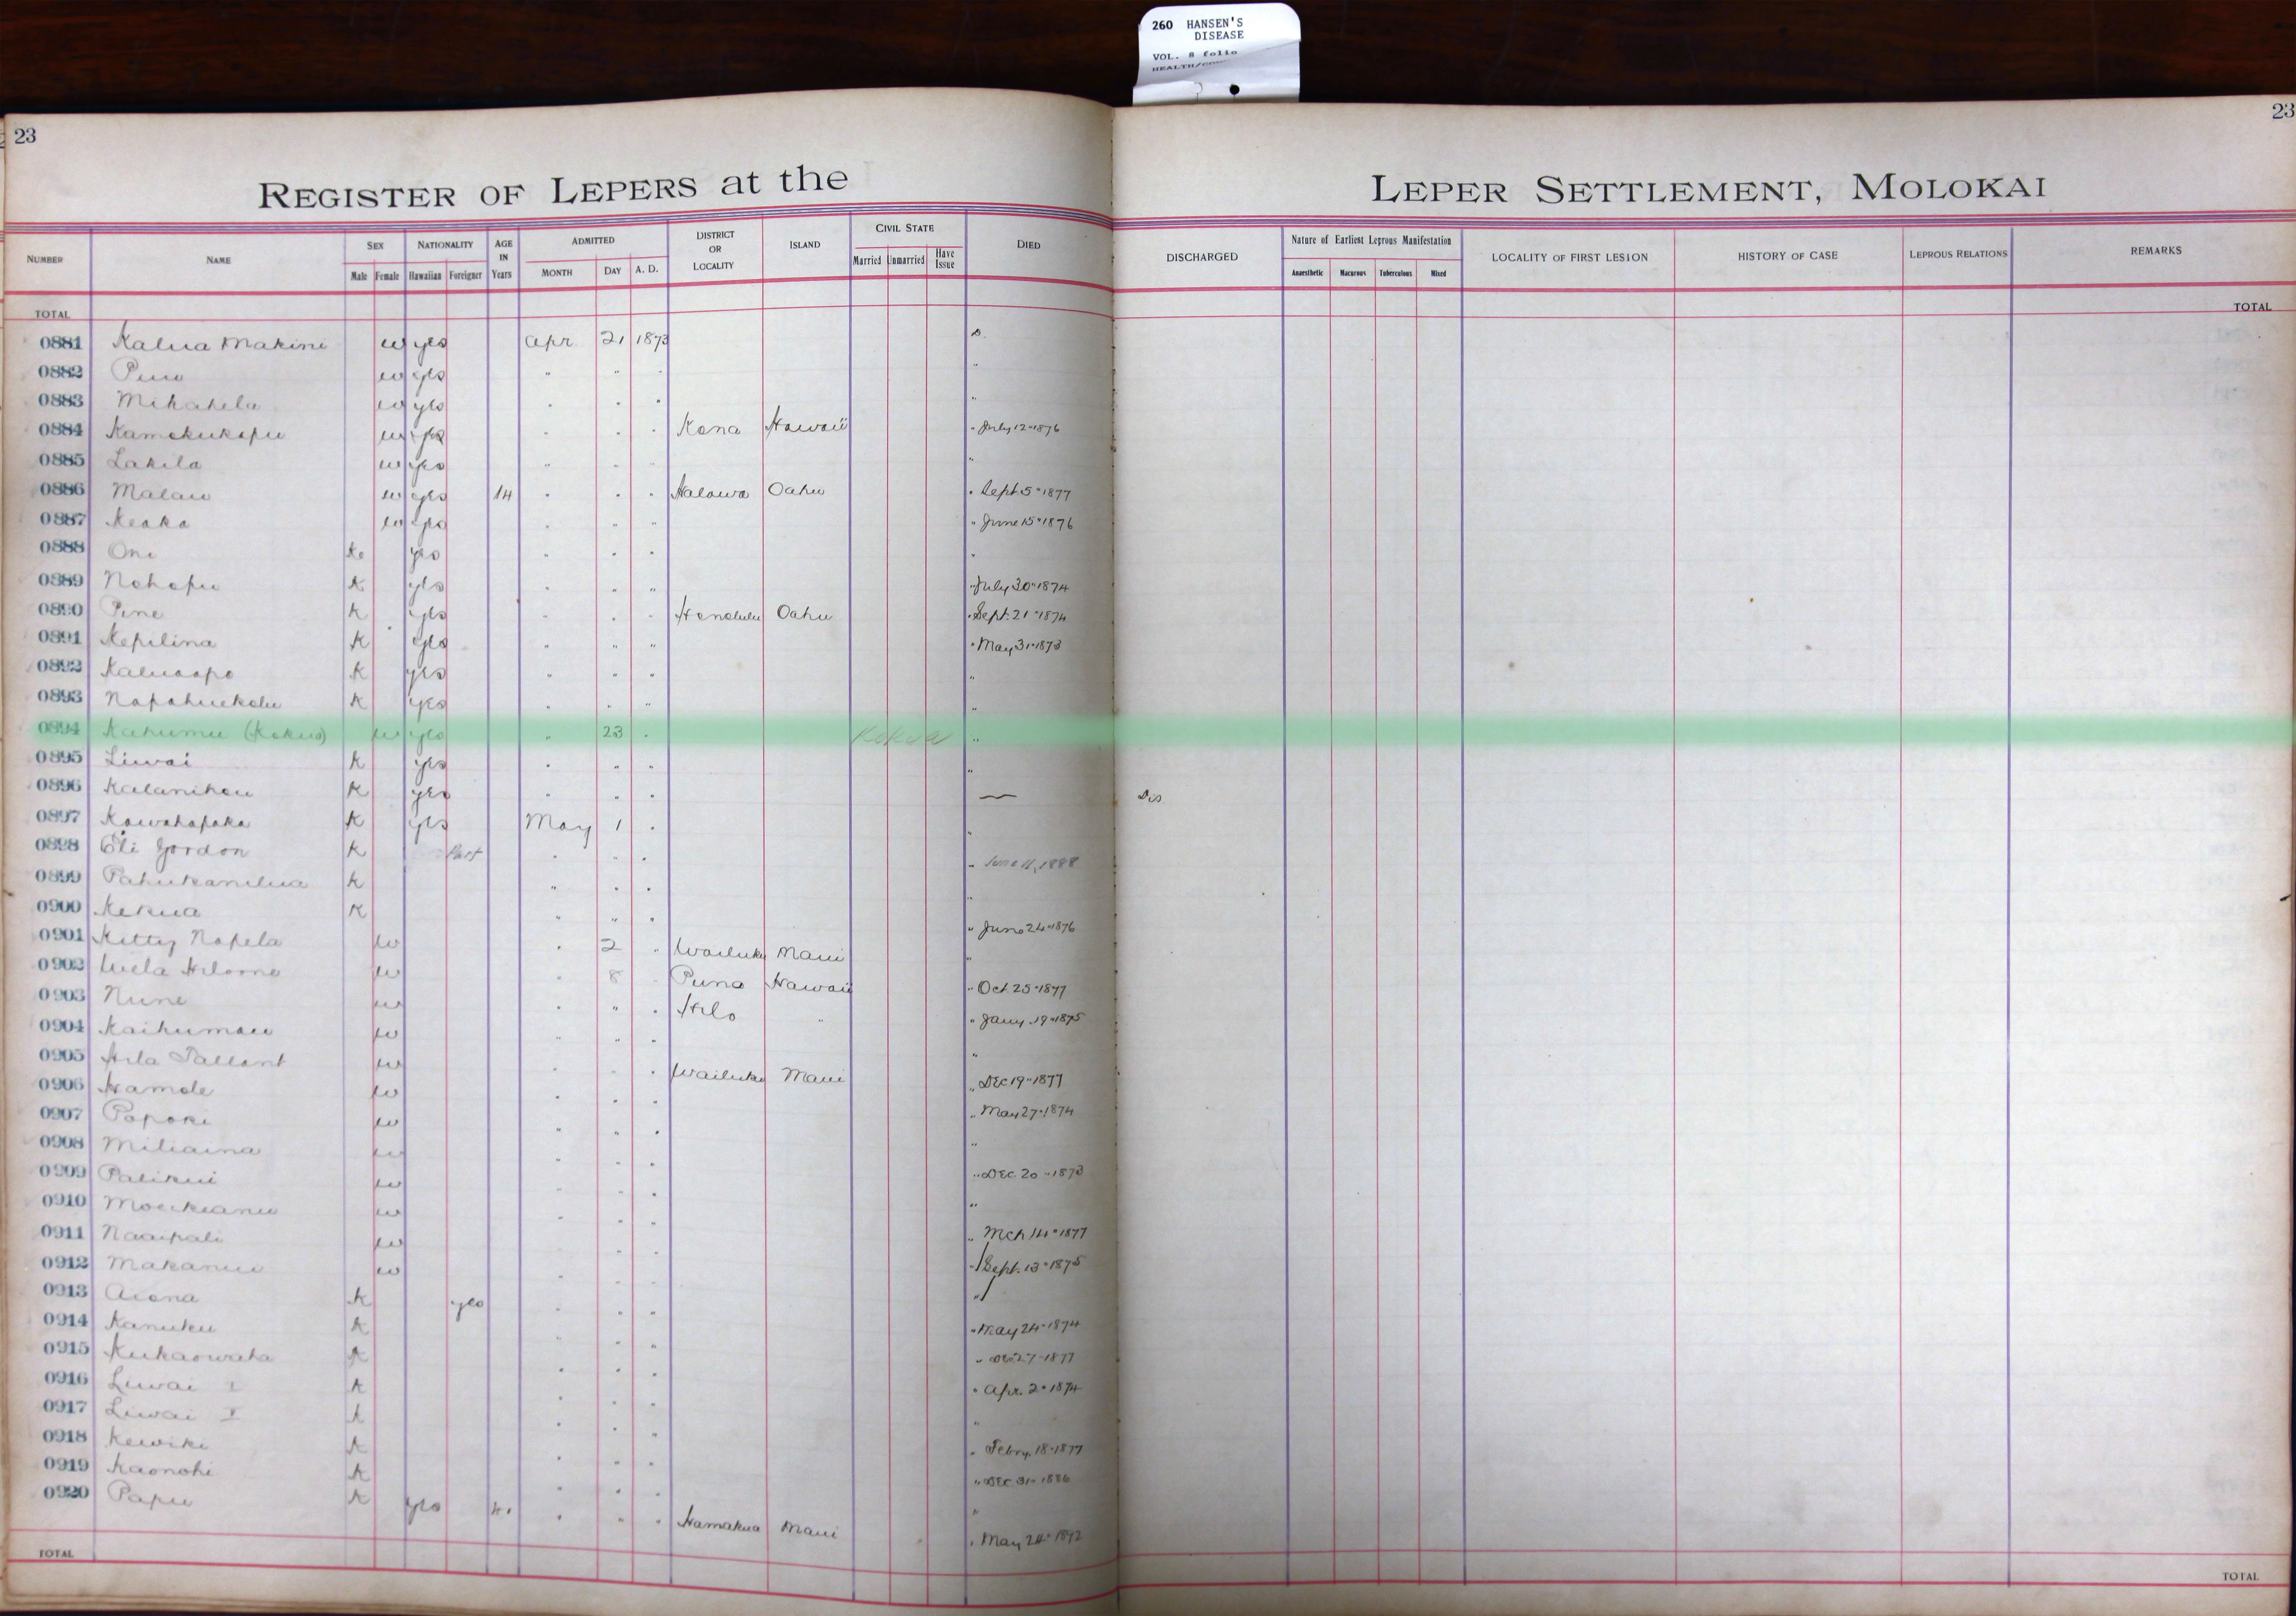 260 HANSEN'S
DISEASE
VOL. 8 folio
23
23
REGISTER OF LEPERS at the LEPER SETTLEMENT, MOLOKAI
NUMBER NAME SEX NATIONALITY AGE IN Years ADMITTED DISTRICT OR LOCALITY ISLAND CIVIL STATE DIED DISCHARGED Nature of Earliest Leprous Manifestation LOCALITY OF FIRST LESION HISTORY OF CASE LEPROUS RELATIONS REMARKS
Male Female Hawaiian Foreigner MONTH DAY A. D. Married Unmarried Have Issue Anaesthetic Macurous Tuberculous Mixed
TOTAL TOTAL
0881 Kalua Makini w yes Apr 21 1873 D.
0882 w yes " " " "
0883 Mikahela w yes " " " "
0884 Kamokukapu w yes " " " Kona Hawaii " July 12" 1876
0885 Lakila w yes " " " "
0886 Malau w yes 14 " " " Halawa Oahu " Sept. 5" 1877
0887 Keaka w yes " " " " June 15" 1876
0888 Oni K yes " " " "
0889 Nohopu K yes " " " " July 30" 1874
0890 Pine K yes " " " Honolulu Oahu " Sept. 21" 1874
0891 Kepilina K yes " " " " May 31" 1873
0892 Kaluaopo K yes " " " "
0893 Napahuekolu K yes " " " "
0894 Kahumu (Kokua) w yes " 23 " Kokua "
0895 Liwai K yes " " " "
0896 Kalanihou K yes " " " — Dis
0897 Kawahapaka K yes May 1 " "
0898 Eli Gordon K Part " " " " June 11, 1888
0899 Pahukanilua K " " " "
0900 Kekua K " " " " June 24" 1876
0901 Kitty Napela w " 2 " Wailuku Maui "
0902 w " 8 " Puna Hawaii " Oct. 25" 1877
0903 Nune w " " " Hilo " " Jany. 19" 1875
0904 Kaihumau w " " " "
0905 Hila Tallant w " " " Wailuku Maui " Dec 19" 1877
0906 Hamole w " " " " May 27" 1874
0907 Papoki w " " " "
0908 Miliaina w " " " " Dec. 20" 1873
0909 Palikui w " " " "
0910 Moeikeanu w " " " " Mch 14" 1877
0911 Naaipali w " " " " Sept. 13" 1875
0912 Makanui w " " " "
0913 Aiona K yes " " " " May 24" 1874
0914 Kanuku K " " " " Dec 27" 1877
0915 Kukaowaha K " " " " Apr. 2" 1874
0916 Liwai K " " " "
0917 Liwai K " " " " Febry. 18" 1877
0918 Kewiki K " " " " Dec. 31" 1886
0919 Kaonohi K " " " "
0920 Papu K yes " " " Hamakua Maui " May 24" 1892
TOTAL TOTAL